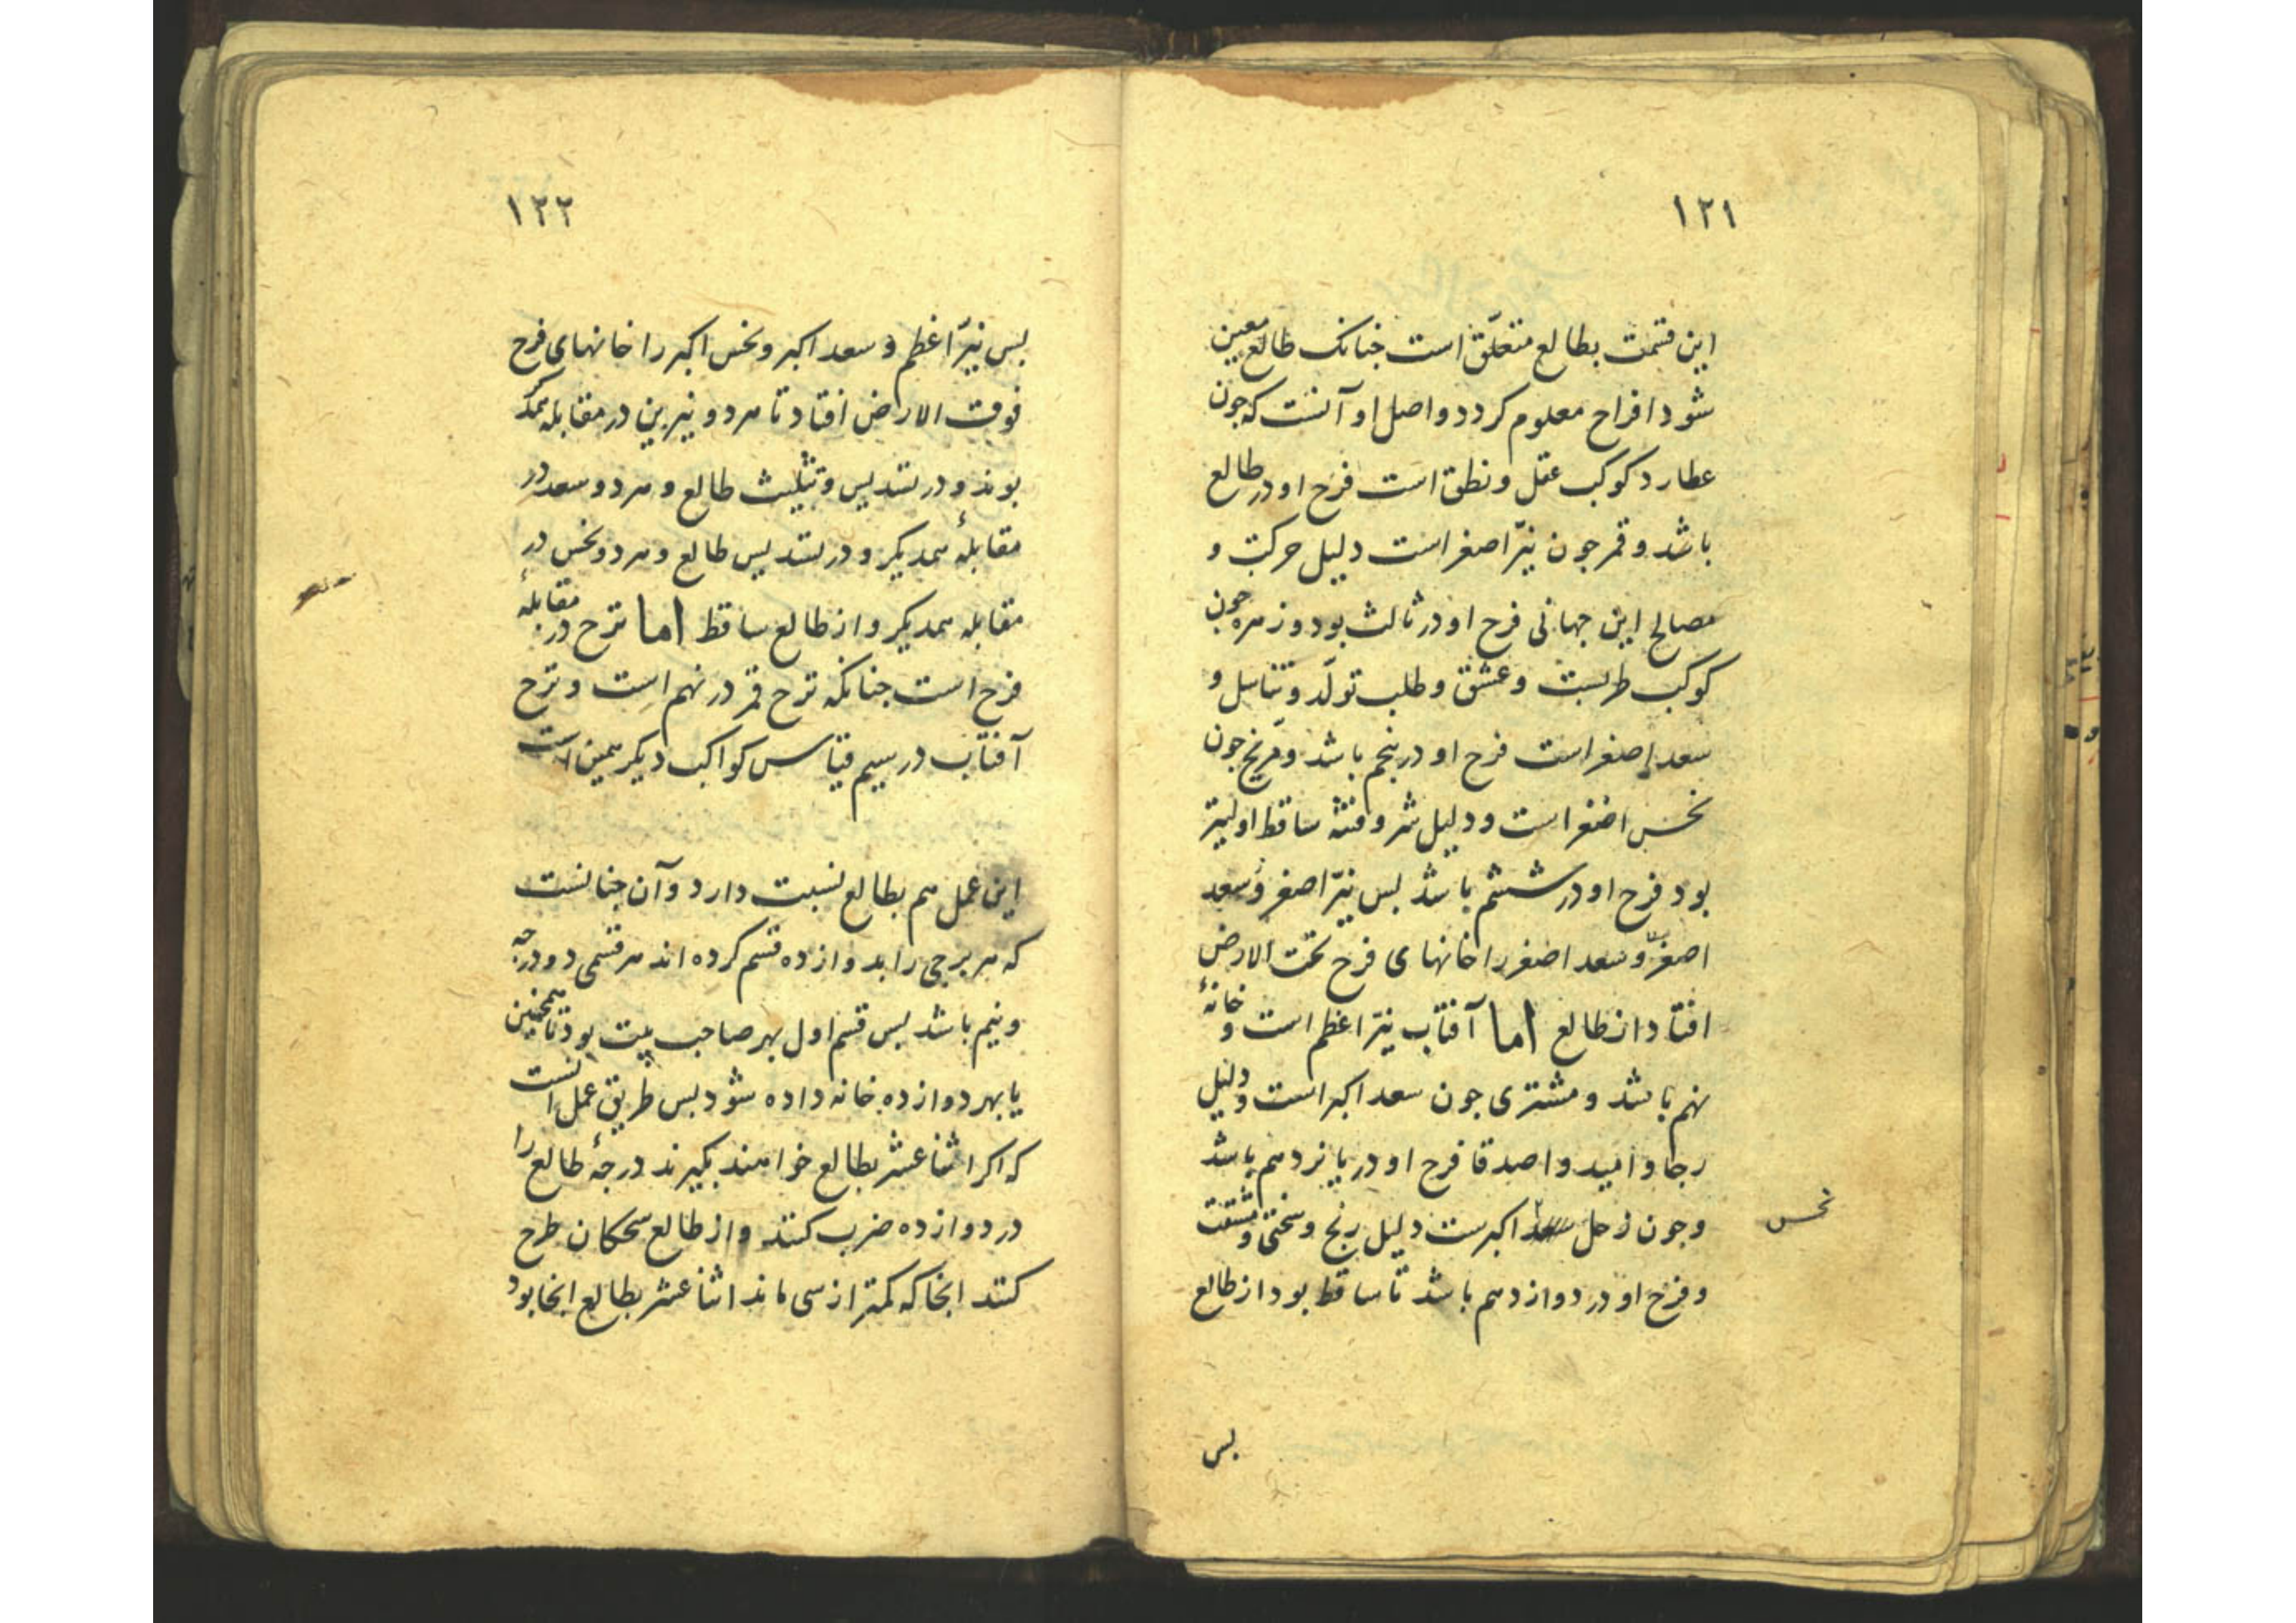 ۱۲۱
این قسمت بطالع متعلّق است جنانک طالع معین
شود افراح معلوم کردد واصل او آنست که جون
عطارد کوکب عقل ونطق است فرح او در طالع
باشد وقمر جون نیّر اصغر است دلیل حرکت و
مصالح این جهانی فرح او در ثالث بود وزهره جون
کوکب طربست وعشق وطلب تولّد وتناسل و
سعد اصغر است فرح او در پنجم باشد ومریخ جون
نحس اصغر است ودلیل شر وفتنه ساقط اولیتر
بود فرح او در ششم باشد بس نیّر اصغر وسعد
اصغر وسعد اصغر را خانهای فرح تحت الارض
افتاد از طالع اما آفتاب نیّر اعظم است و خانهٔ
نهم باشد ومشتری جون سعد اکبر است ودلیل
رجا وامید واصدقا فرح او در یانزدهم باشد
وجون زحل اکبرست دلیل رنج وسختی ومشقت
نحس
وفرح او در دوازدهم باشد تا ساقط بود از طالع
بس
۱۲۲
بس نیّر اعظم وسعد اکبر ونحس اکبر را خانهای فرح
فوق الارض افتاد تا هر دو نیرین در مقابله همدکر
بوند ودر تسدیس وتثلیث طالع وهر دو سعد در
مقابلهٔ همدیکر ودر تسدیس طالع وهر دو نحس در
مقابله همدیکر واز طالع ساقط اما ترح در مقابلهٔ
فرح است جنانکه ترح قمر در نهم است وترح
آفتاب در سیم قیاس کواکب دیکر همین است
این عمل هم بطالع نسبت دارد وآن جنانست
که هر برجی را بدوازده قسم کرده اند هر قسمی دو درجه
ونیم باشد بس قسم اول بهر صاحب بیت بود تا همجنین
یا بهر دوازده خانه داده شود بس طریق عمل انست
که اکر اثنا عشر بطالع خواهند بکیرند درجهٔ طالع را
در دوازده ضرب کنند واز طالع سحکان طرح
کنند انجا که کمتر از سی ماند اثنا عشر بطالع انجا بود